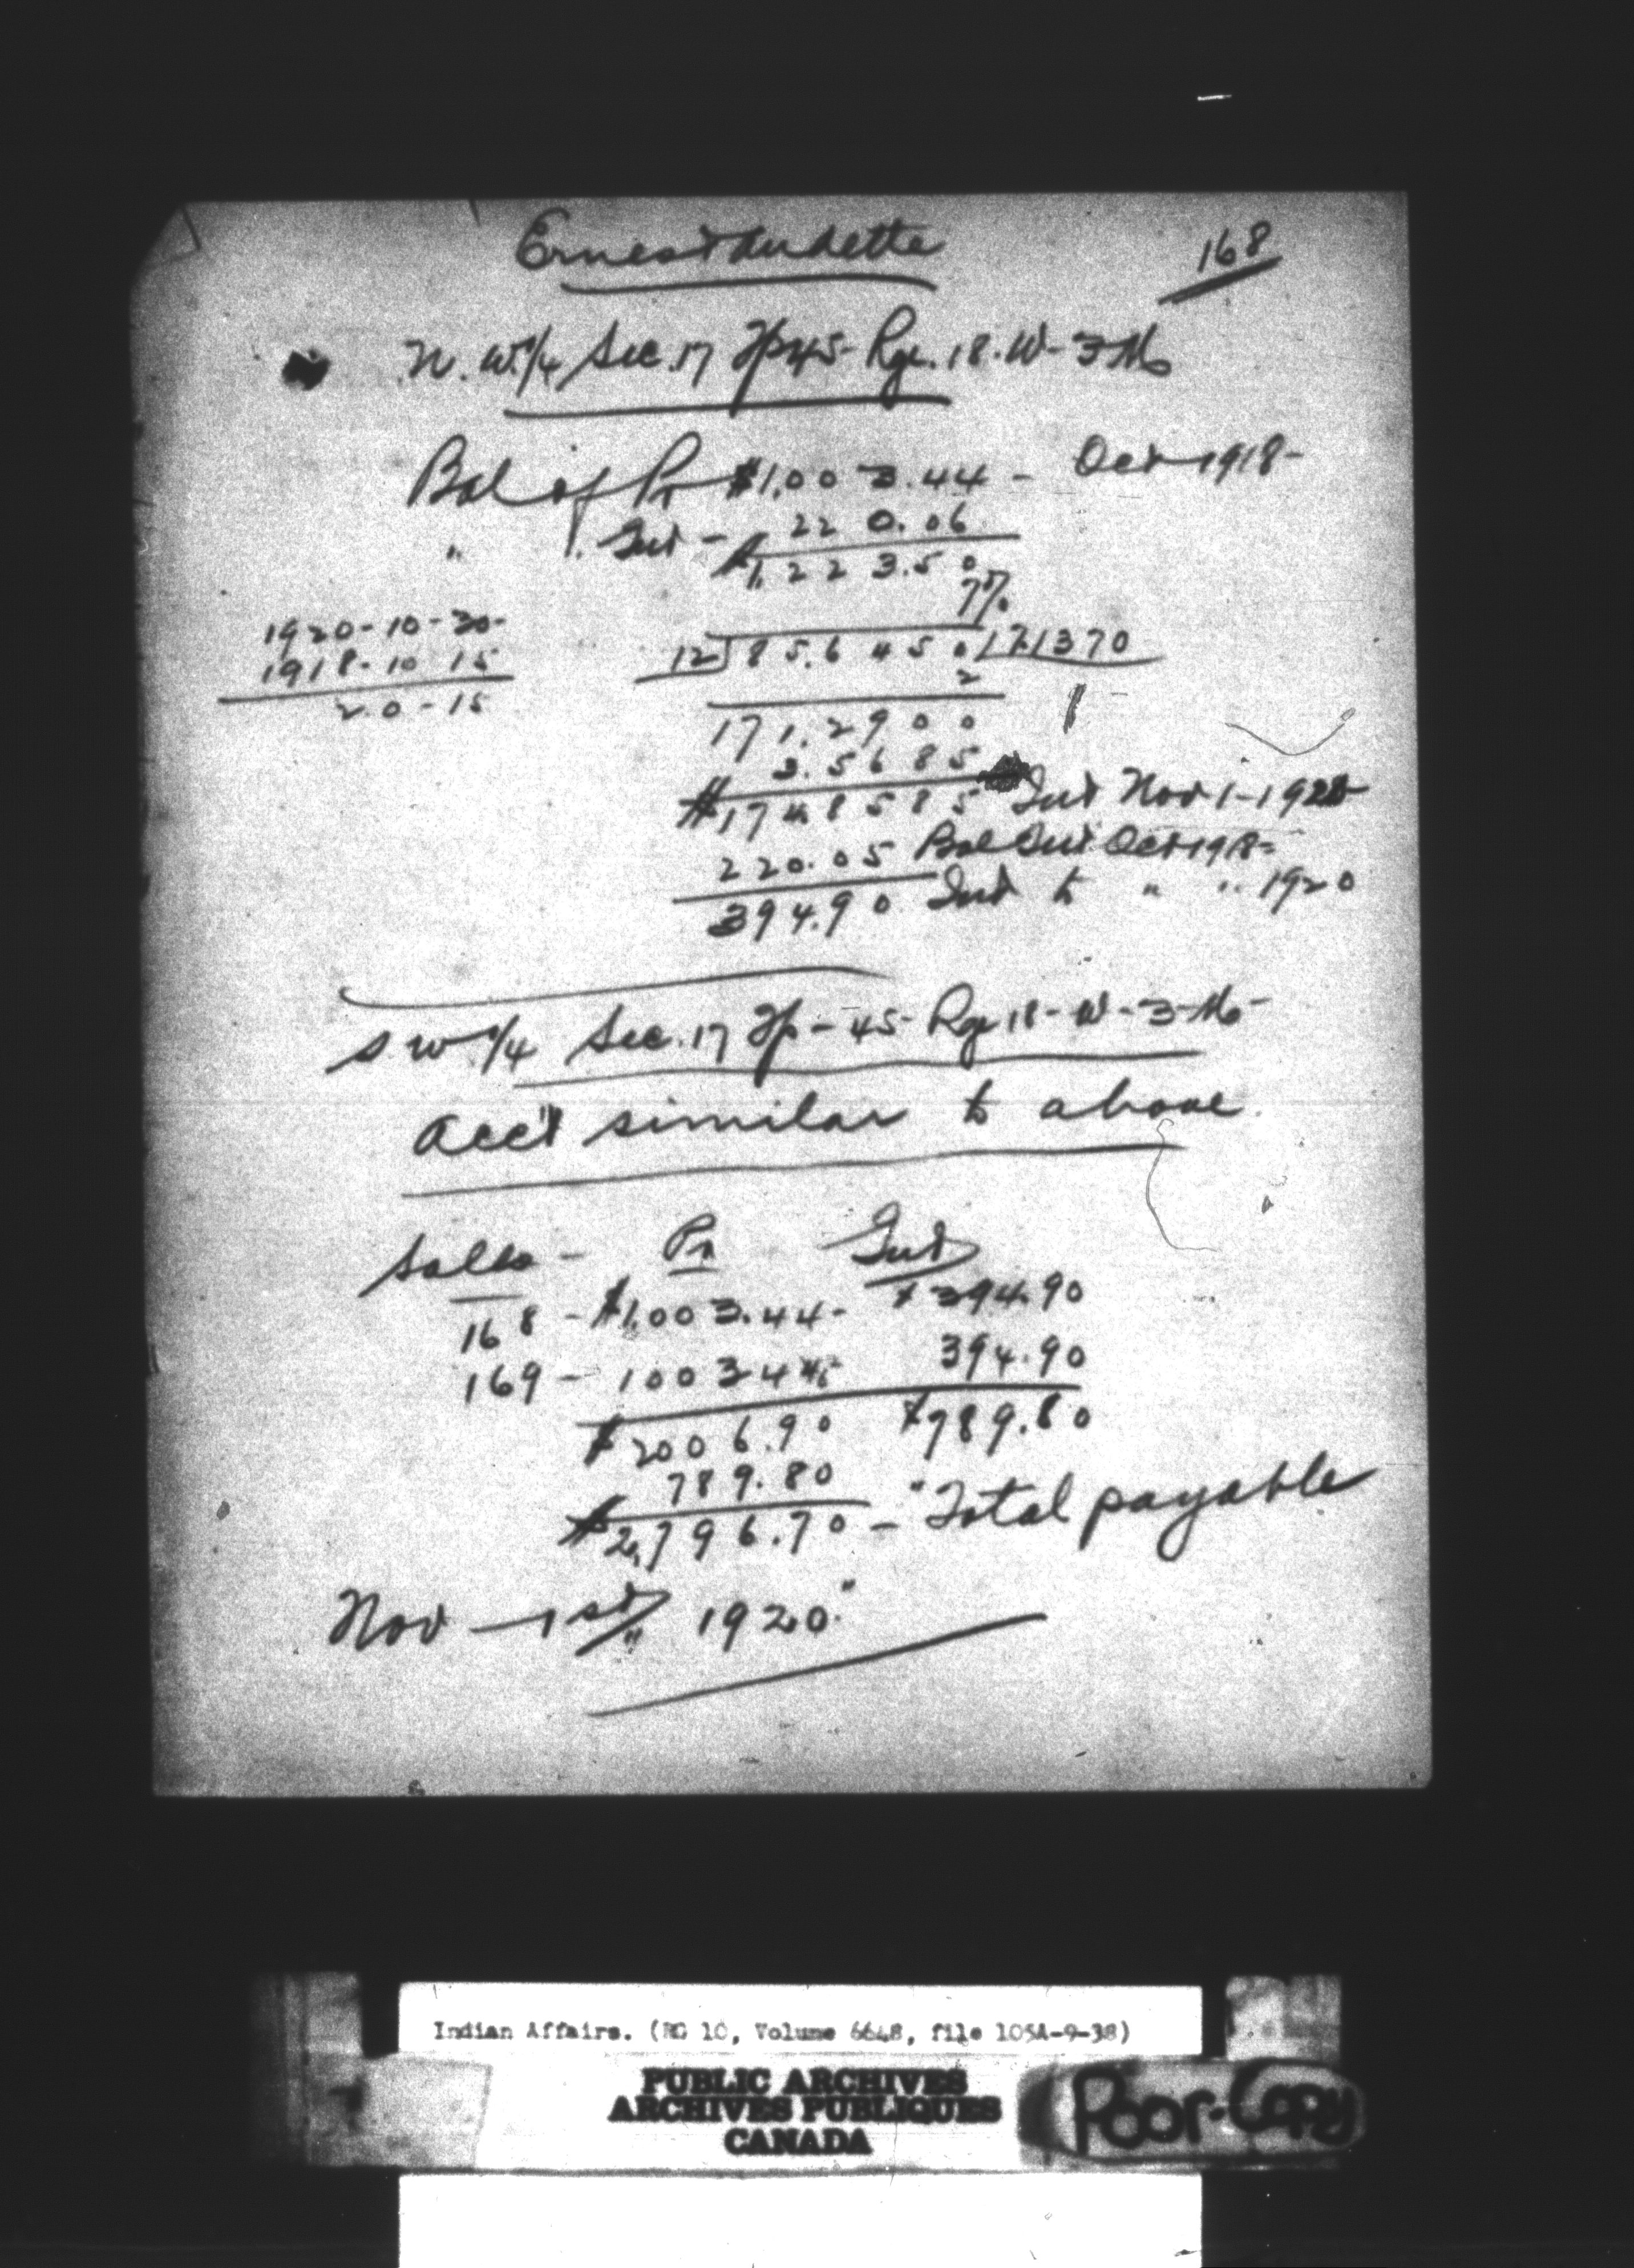 Ernest Audette
168
N. W. 1/4 Sec. 17 Tp 45- Rge. 18. W- 3 M
Bal of Pr $1,003.44 - Oct 1918-
" " Int - 220.06
$1,223.50
7%
1920-10-30-
1918-10 15
2.0-15
12 | 85.6450 | 7.1370
2
171.2900
3.5685
$174.8585 Int Nov 1-1920
220.05 Bal Int Oct 1918-
394.90 Int to " " 1920
S W 1/4 Sec. 17 Tp - 45- Rge 18- W- 3- M-
Acc't similar to above.
Sales - Pr Int
168 - $1,003.44- $394.90
169 - 1003 44 394.90
$2006.90 $789.80
789.80
$2,796.70 - "Total payable
Nov - 1st 1920."
Indian Affairs. (RG 10, Volume 6648, file 105A-9-38)
PUBLIC ARCHIVES
ARCHIVES PUBLIQUES
CANADA
Poor-Copy